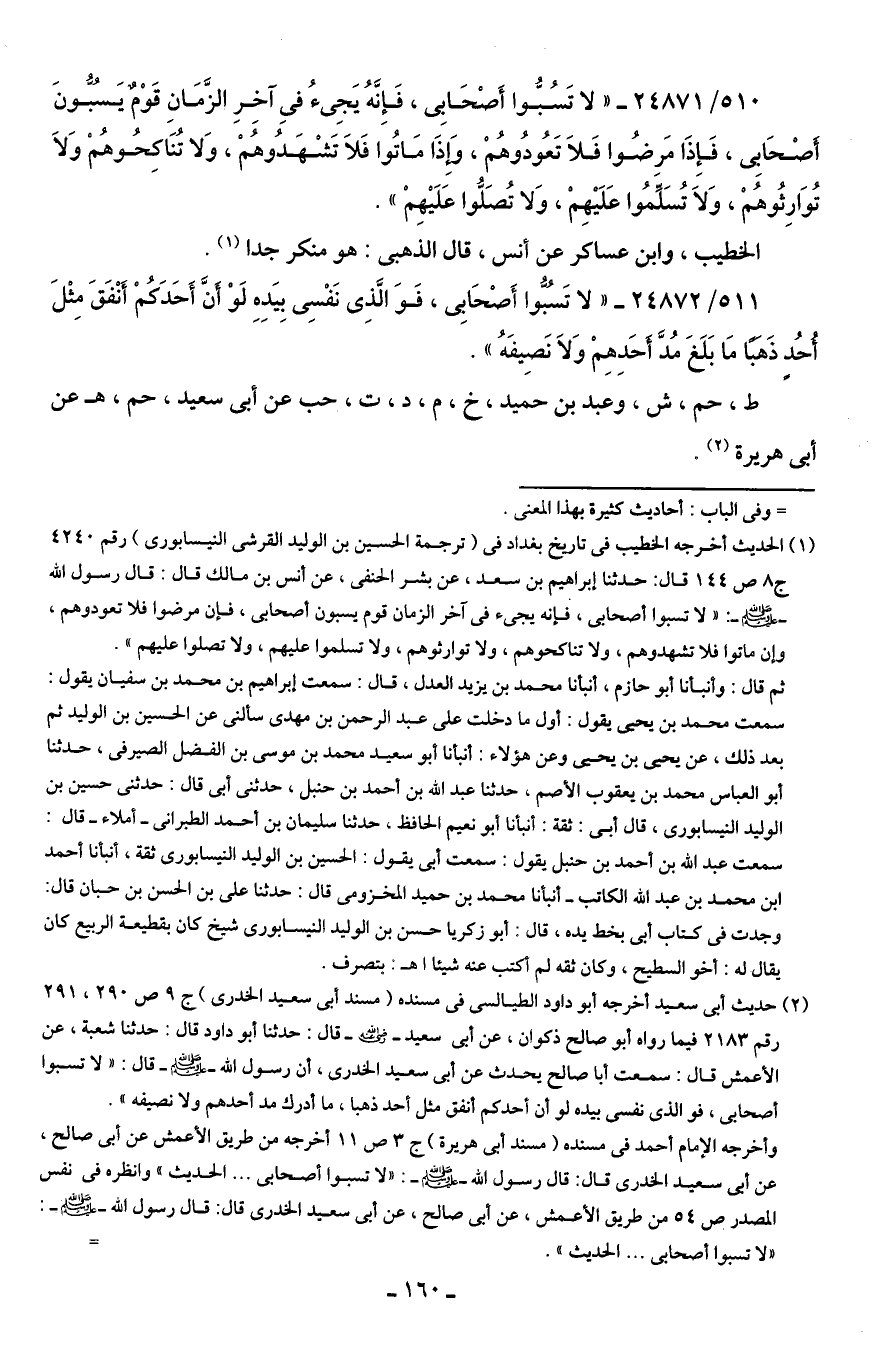 ٥١٠/ ٢٤٨٧١ ـ « لا تَسُبُّوا أَصْحَابِى ، فَإِنَّهُ يَجِىءُ فِى آخِرِ الزَّمَانِ قَوْمٌ يَسُبُّونَ
أَصْحَابِى ، فَإِذَا مَرِضُوا فَلاَ تَعُودُوهُمْ ، وَإِذَا مَاتُوا فَلاَ تَشْهَدُوهُمْ ، وَلا تُنَاكِحُوهُمْ وَلاَ
تُوَارِثُوهُمْ ، وَلاَ تُسَلِّمُوا عَلَيْهِمْ ، وَلا تُصَلُّوا عَلَيْهِمْ » .
الخطيب ، وابن عساكر عن أنس ، قال الذهبى : هو منكر جدا (١) .
٥١١/ ٢٤٨٧٢ ـ « لا تَسُبُّوا أَصْحَابِى ، فَوَ الَّذِى نَفْسِى بِيَدِهِ لَوْ أَنَّ أَحَدَكُمْ أَنْفَقَ مِثْلَ
أُحُدٍ ذَهَبًا مَا بَلَغَ مُدَّ أَحَدِهِمْ وَلاَ نَصِيفَهُ » .
ط ، حم ، ش ، وعبد بن حميد ، خ ، م ، د ، ت ، حب عن أبى سعيد ، حم ، هـ عن
أبى هريرة (٢) .
= وفى الباب : أحاديث كثيرة بهذا المعنى .
(١) الحديث أخرجه الخطيب فى تاريخ بغداد فى ( ترجمة الحسين بن الوليد القرشى النيسابورى ) رقم ٤٢٤٠
ج٨ ص ١٤٤ قال: حدثنا إبراهيم بن سعد ، عن بشر الحنفى ، عن أنس بن مالك قال : قال رسول الله
ـ ﷺ ـ: « لا تسبوا أصحابى ، فإنه يجىء فى آخر الزمان قوم يسبون أصحابى ، فإن مرضوا فلا تعودوهم ،
وإن ماتوا فلا تشهدوهم ، ولا تناكحوهم ، ولا توارثوهم ، ولا تسلموا عليهم ، ولا تصلوا عليهم » .
ثم قال : وأنبأنا أبو حازم ، أنبأنا محمد بن يزيد العدل ، قال : سمعت إبراهيم بن محمد بن سفيان يقول :
سمعت محمد بن يحيى يقول : أول ما دخلت على عبد الرحمن بن مهدى سألنى عن الحسين بن الوليد ثم
بعد ذلك ، عن يحيى بن يحيى وعن هؤلاء : أنبأنا أبو سعيد محمد بن موسى بن الفضل الصيرفى ، حدثنا
أبو العباس محمد بن يعقوب الأصم ، حدثنا عبد الله بن أحمد بن حنبل ، حدثنى أبى قال : حدثنى حسين بن
الوليد النيسابورى ، قال أبى : ثقة : أنبأنا أبو نعيم الحافظ ، حدثنا سليمان بن أحمد الطبرانى ـ أملاء ـ قال :
سمعت عبد الله بن أحمد بن حنبل يقول : سمعت أبى يقول : الحسين بن الوليد النيسابورى ثقة ، أنبأنا أحمد
ابن محمد بن عبد الله الكاتب ـ أنبأنا محمد بن حميد المخزومى قال : حدثنا على بن الحسن بن حبان قال:
وجدت فى كتاب أبى بخط يده ، قال : أبو زكريا حسن بن الوليد النيسابورى شيخ كان بقطيعة الربيع كان
يقال له : أخو السطيح ، وكان ثقه لم أكتب عنه شيئا ا هـ : بتصرف .
(٢) حديث أبى سعيد أخرجه أبو داود الطيالسى فى مسنده ( مسند أبى سعيد الخدرى ) ج ٩ ص ٢٩٠ ، ٢٩١
رقم ٢١٨٣ فيما رواه أبو صالح ذكوان ، عن أبى سعيد ـ رضي الله عنه ـ قال : حدثنا أبو داود قال : حدثنا شعبة ، عن
الأعمش قال : سمعت أبا صالح يحدث عن أبى سعيد الخدرى ، أن رسول الله ـ ﷺ ـ قال : « لا تسبوا
أصحابى ، فو الذى نفسى بيده لو أن أحدكم أنفق مثل أحد ذهبا ، ما أدرك مد أحدهم ولا نصيفه » .
وأخرجه الإمام أحمد فى مسنده ( مسند أبى هريرة ) ج ٣ ص ١١ أخرجه من طريق الأعمش عن أبى صالح ،
عن أبى سعيد الخدرى قال: قال رسول الله ـ ﷺ ـ : «لا تسبوا أصحابى ... الحديث » وانظره فى نفس
المصدر ص ٥٤ من طريق الأعمش ، عن أبى صالح ، عن أبى سعيد الخدرى قال: قال رسول الله ـ ﷺ ـ :
«لا تسبوا أصحابى ... الحديث » .
=
ـ ١٦٠ ـ